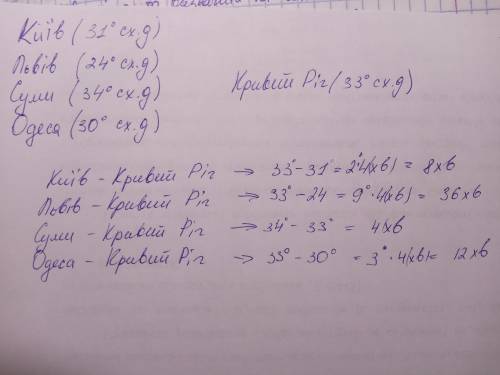 Київ (31° сх.д)
Львів (24° сх.д)
Суми (34° сх.д)
Одеса (30° сх.д)
Кривий Ріг (33° сх.д)
Київ - Кривий Ріг → 33° - 31° = 2°·4(хв) = 8хв
Львів - Кривий Ріг → 33° - 24 = 9°·4(хв) = 36хв
Суми - Кривий Ріг → 34° - 33° = 4хв
Одеса - Кривий Ріг → 33° - 30° = 3°·4(хв)= 12хв